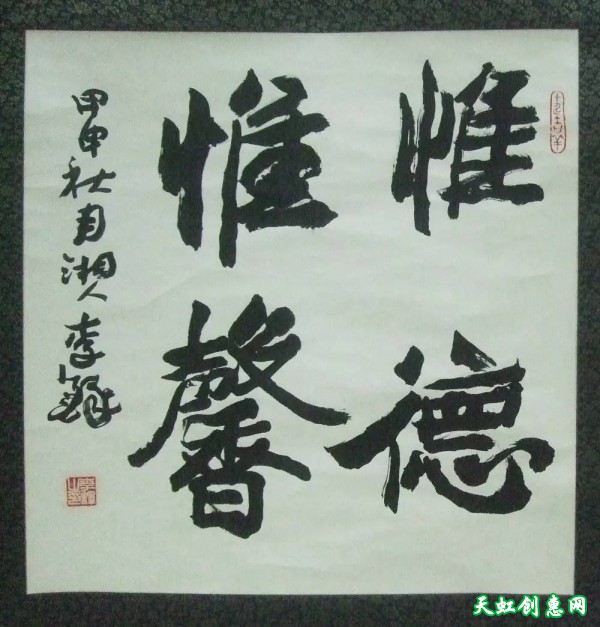 惟德
惟馨
甲申秋月湘人李鐸
天虹创惠网